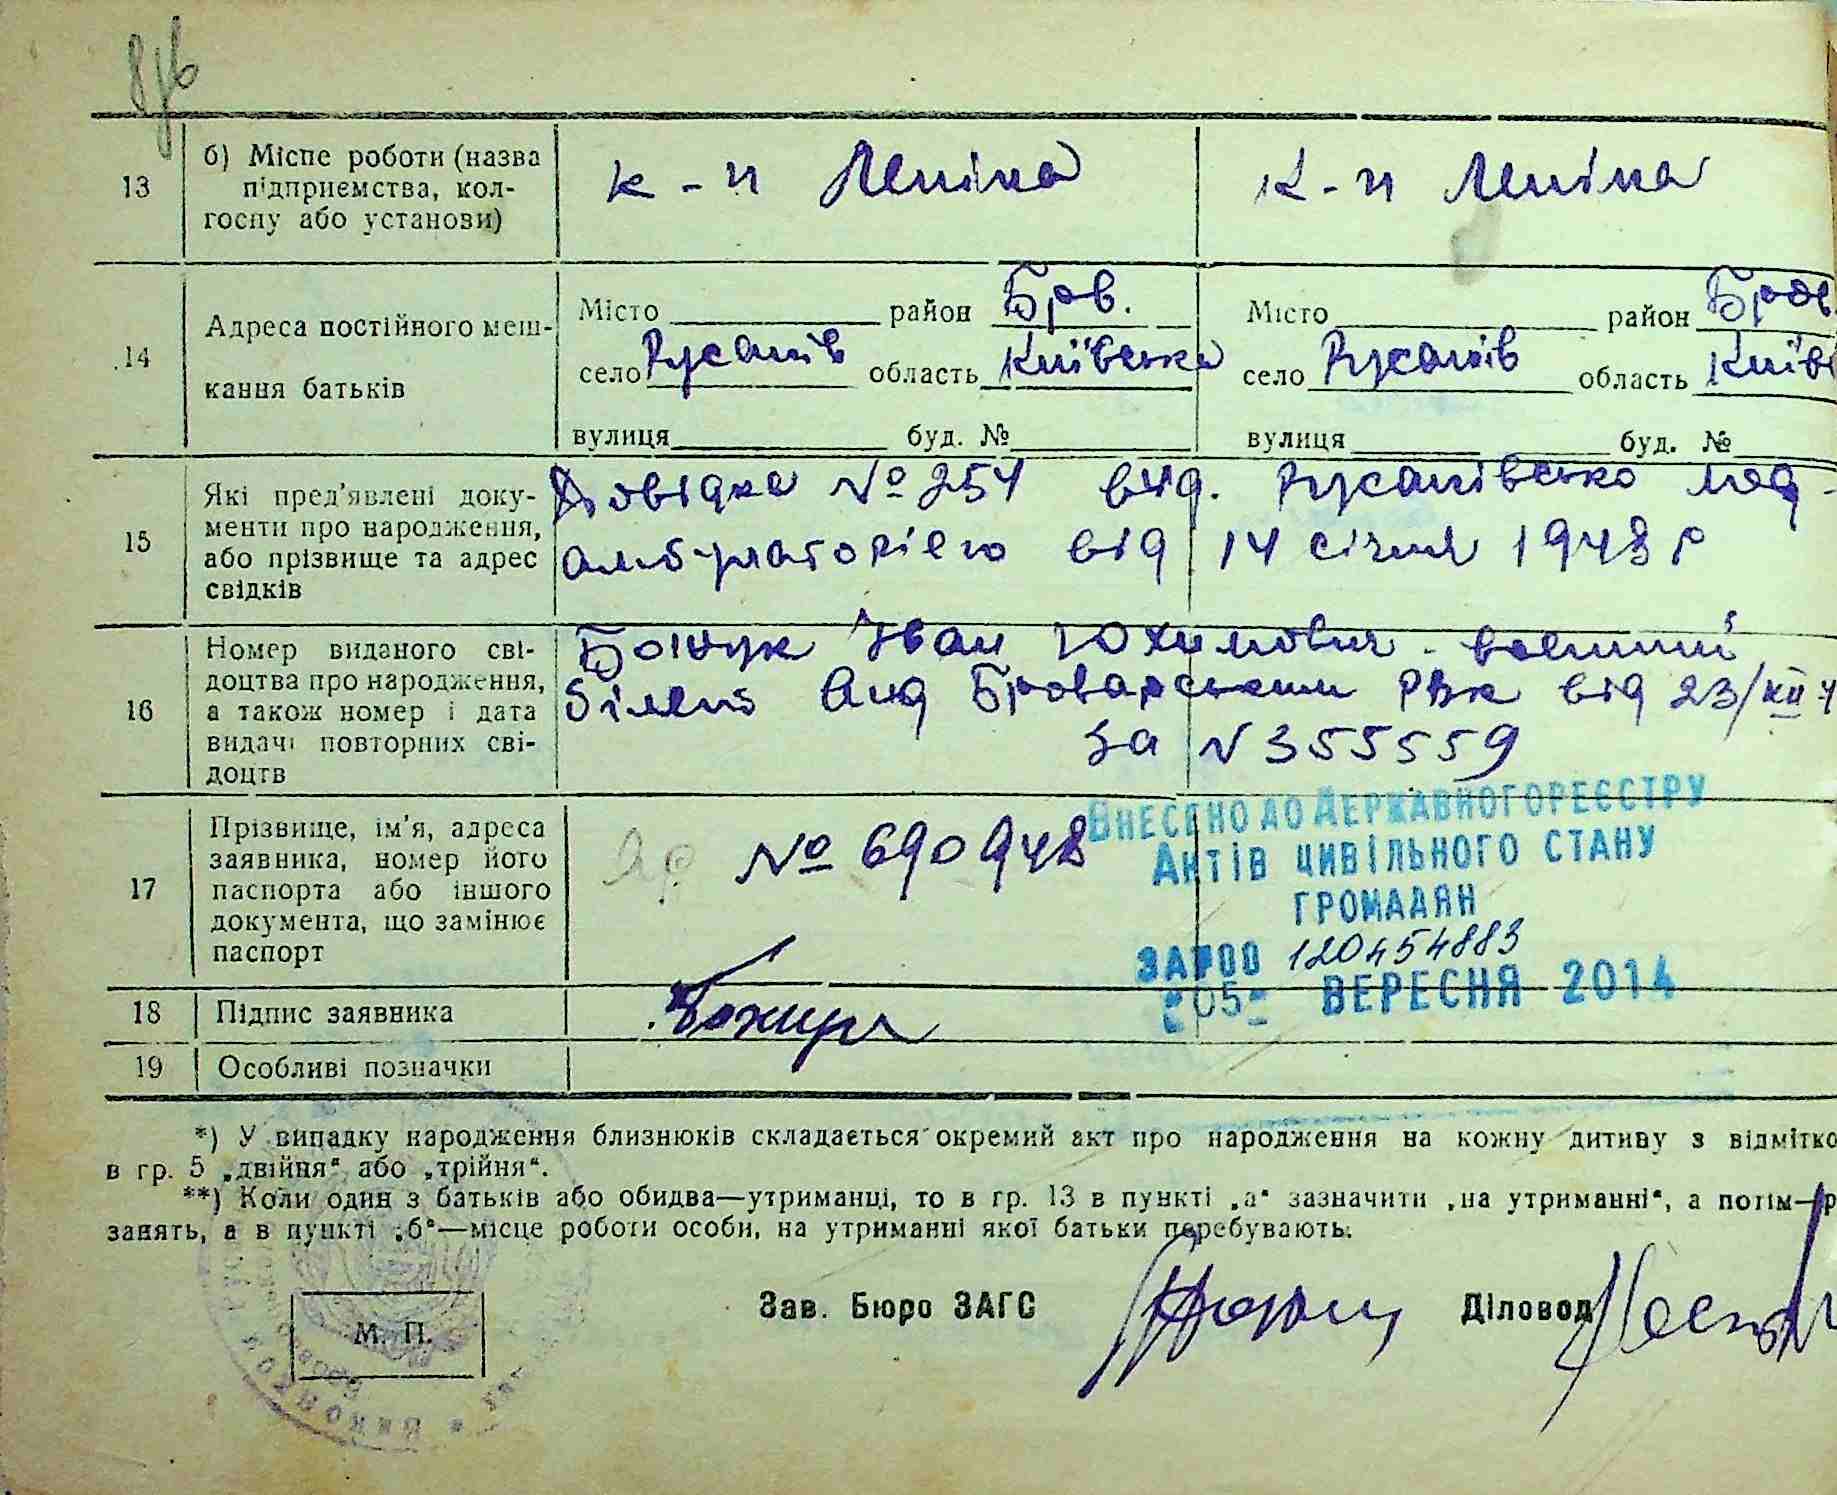 13
б) Місце роботи (назва
підприємства, кол-
госпу або установи)
к-п Леніна
к-п Леніна
14
Адреса постійного меш-
кання батьків
Місто район Бров.
село Русанів область Київська
вулиця буд. №
Місто район Бров.
село Русанів область Київ
вулиця буд. №
15
Які пред'явлені доку-
менти про народження,
або прізвище та адрес
свідків
Довідка № 254 вид. Русанівсько мед
амбулаторією від 14 січня 1948 р
16
Номер виданого сві-
доцтва про народження,
а також номер і дата
видачі повторних сві-
доцтв
Іван Юхимович - воєнний
білет вид Броварським РВК від 23/XII 4
за № 355559
17
Прізвище, ім'я, адреса
заявника, номер його
паспорта або іншого
документа, що замінює
паспорт
№ 690948
Внесено до Державного реєстру
Актів цивільного стану
громадян
за №00 120454883
05 вересня 2014
18
Підпис заявника
19
Особливі позначки
*) У випадку народження близнюків складається окремий акт про народження на кожну дитину з відмітко
в гр. 5 „двійня“ або „трійня“.
**) Коли один з батьків або обидва—утриманці, то в гр. 13 в пункті „а“ зазначити „на утриманні“, а потім—р
занять, а в пункті „б“—місце роботи особи, на утриманні якої батьки перебувають.
Зав. Бюро ЗАГС
Діловод
М. П.